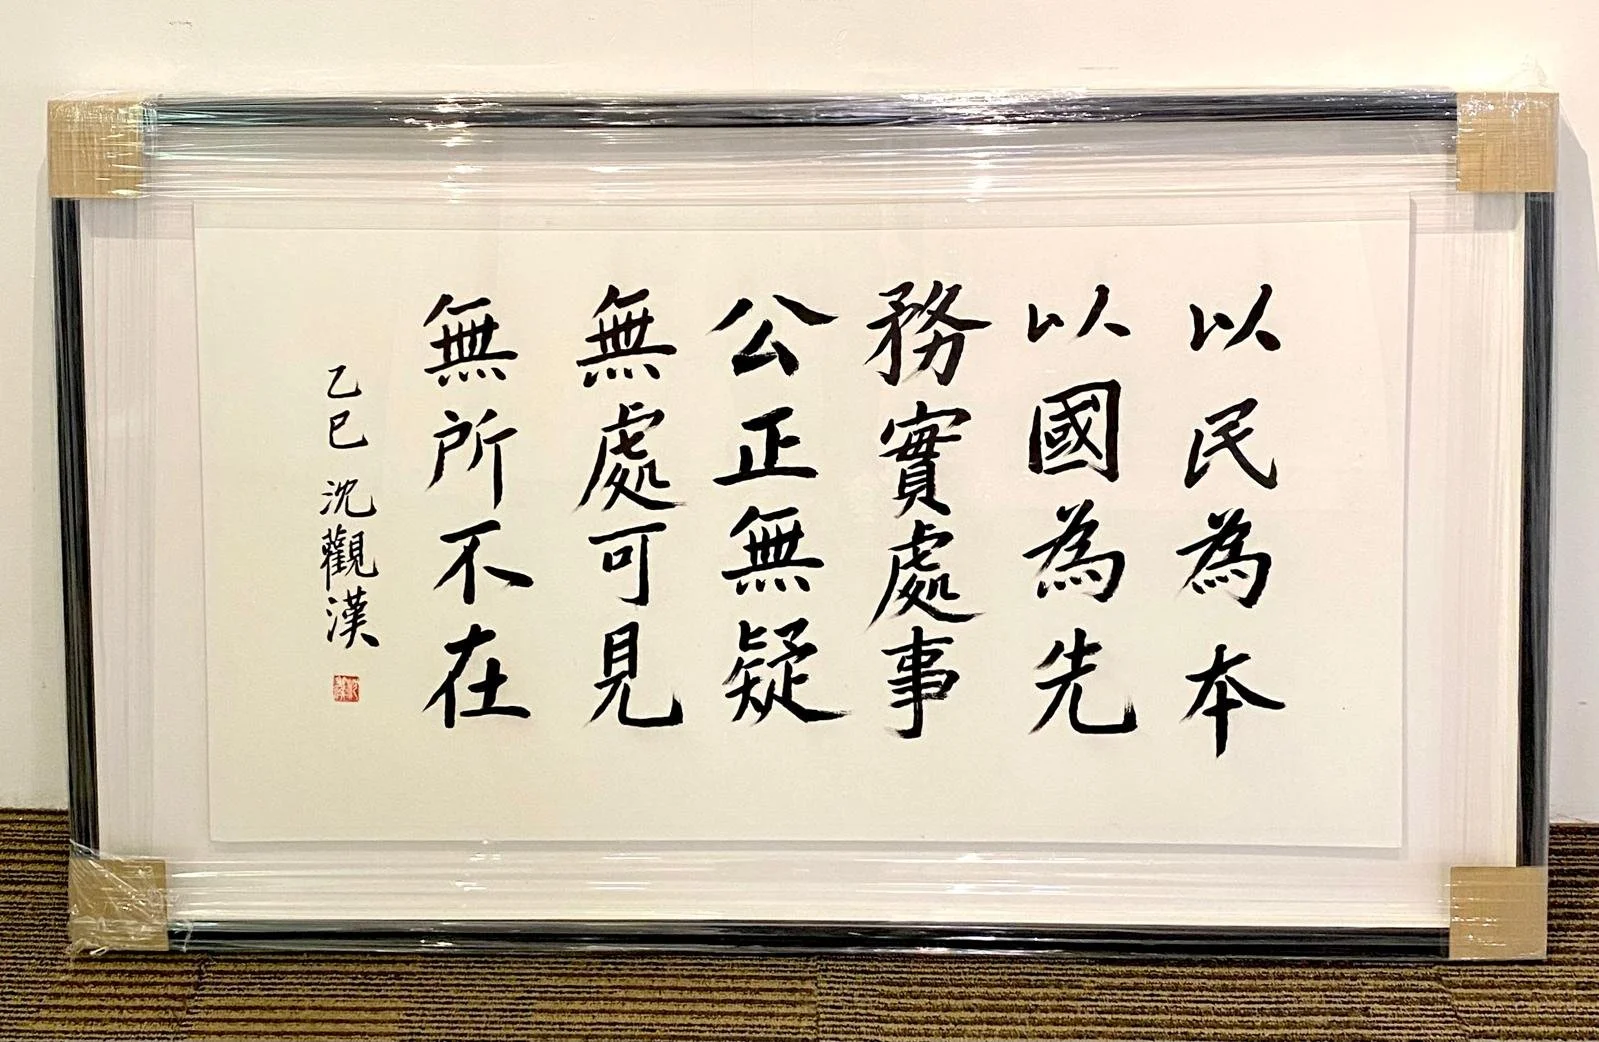 以民為本
以國為先
務實處事
公正無疑
無處可見
無所不在
乙巳 沈觀漢